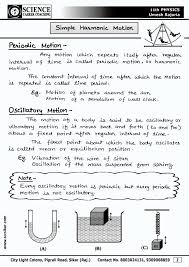 SCIENCE
CAREER COACHING
11th PHYSICS
Umesh Rajoria
Simple Harmonic Motion
Periodic Motion -
Any motion which repeats itself after regular
interval of time is called periodic motion or harmonic
motion.
The constant interval of time after which the motion
is repeated is called time period.
Eg. Motion of planets around the sun.
Motion of a pendulum of wall clock.
Oscillatory Motion -
The motion of a body is said to be oscillatory or
vibratory motion if it moves back and forth (to and fro)
about a fixed point after regular interval of time.
The fixed point about which the body oscillates
is called mean position or equilibrium position.
Eg. Vibration of the wire of Sitar.
Oscillation of the mass suspended from spring.
Note -
Every oscillatory motion is periodic but every periodic
motion is not oscillatory.
City Light Colony, Piprali Road, Sikar (Raj.)